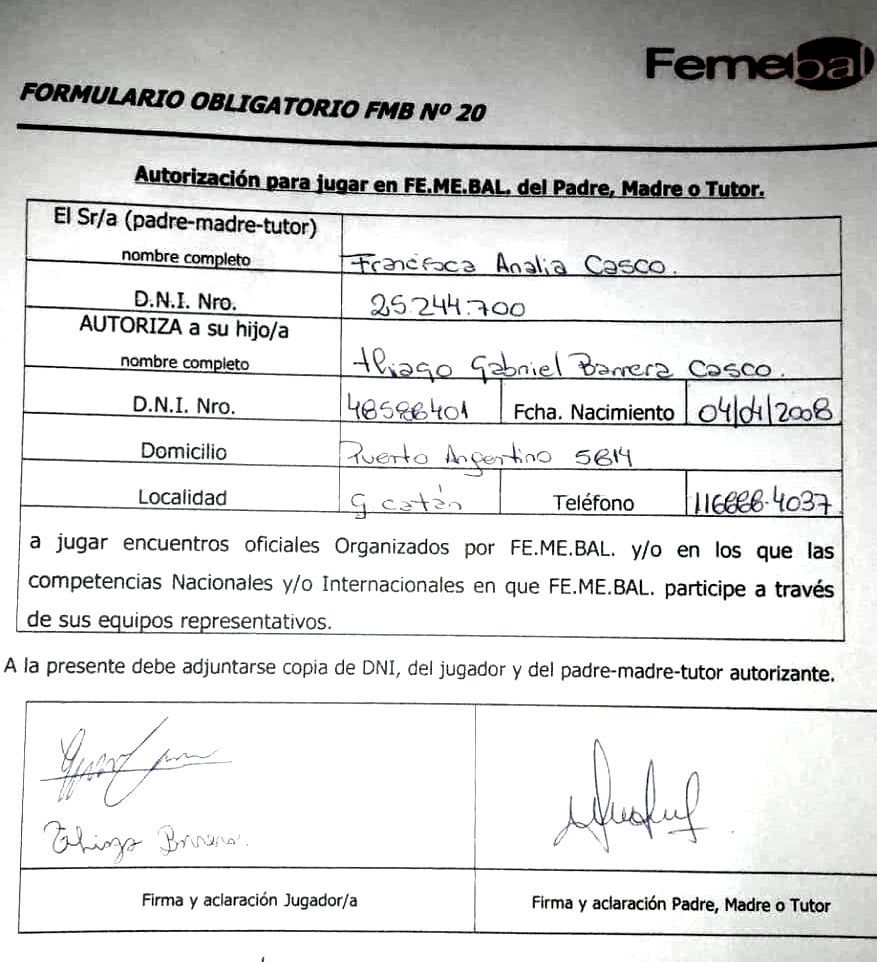 Femebal
FORMULARIO OBLIGATORIO FMB Nº 20
Autorización para jugar en FE.ME.BAL. del Padre, Madre o Tutor.
El Sr/a (padre-madre-tutor)
nombre completo Francisca Analia Casco.
D.N.I. Nro. 25.244.700
AUTORIZA a su hijo/a
nombre completo thiago Gabriel Barrera Casco.
D.N.I. Nro. 48586401 Fcha. Nacimiento 04/04/2008
Domicilio Puerto Argentino 5614
Localidad G catán Teléfono
a jugar encuentros oficiales Organizados por FE.ME.BAL. y/o en los que las
competencias Nacionales y/o Internacionales en que FE.ME.BAL. participe a través
de sus equipos representativos.
A la presente debe adjuntarse copia de DNI, del jugador y del padre-madre-tutor autorizante.
Thiago Barrera.
Firma y aclaración Jugador/a Firma y aclaración Padre, Madre o Tutor